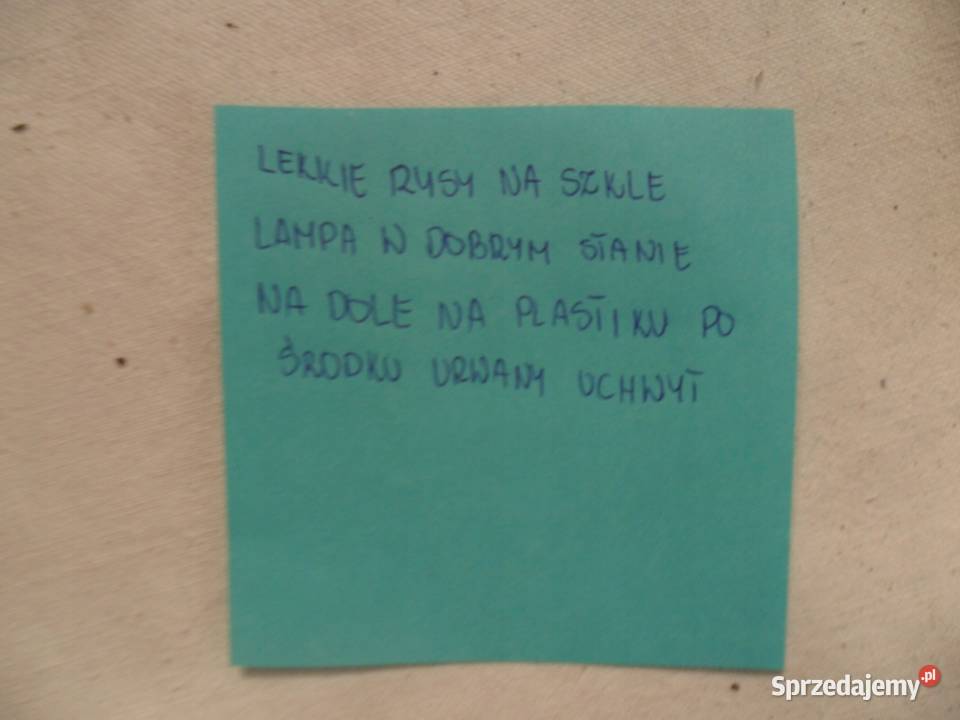 LEKKIE RYSY NA SZKLE
LAMPA W DOBRYM STANIE
NA DOLE NA PLASTIKU PO
ŚRODKU URWANY UCHWYT
Sprzedajemy.pl